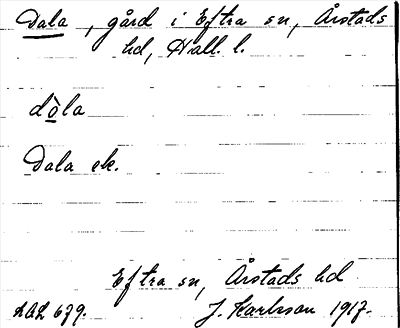 Dala, gård i Eftra sn, Årstads
hd, Hall. l.
dò̲la
Dala ek.
Eftra sn, Årstads hd
LAL 679. J. Karlsson 1917.